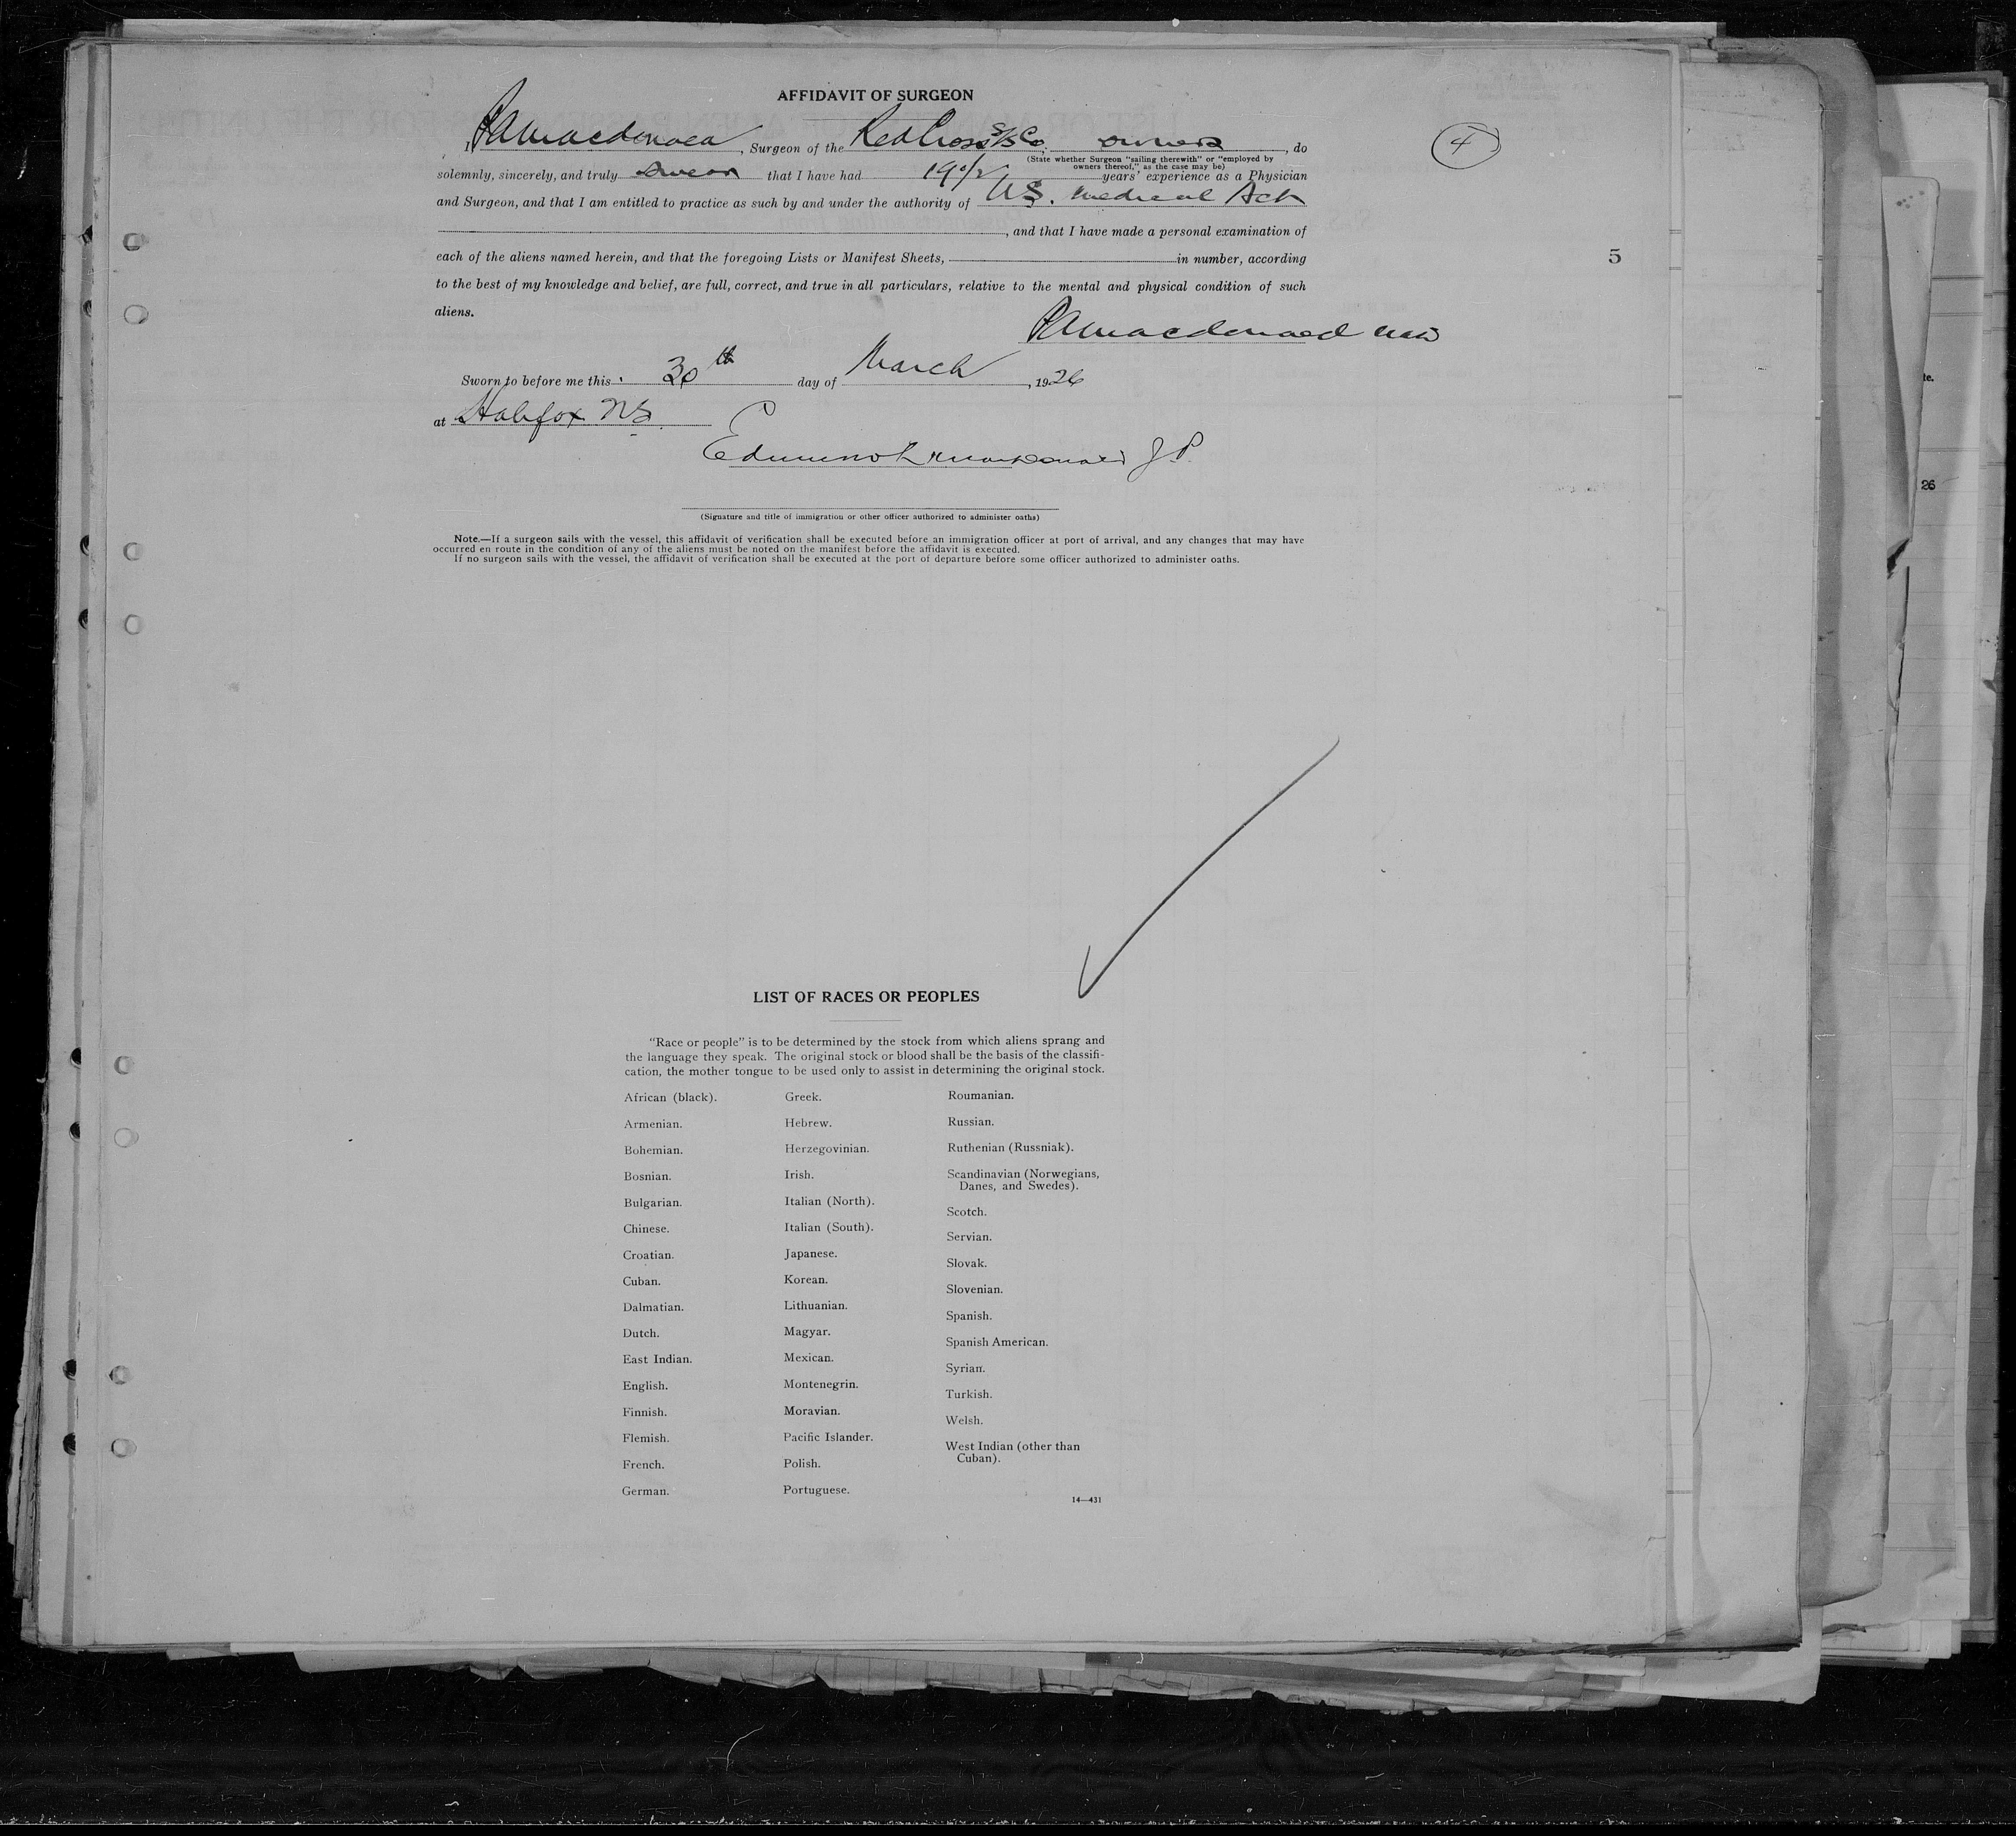 AFFIDAVIT OF SURGEON
4
I PAMacdonald, Surgeon of the Red Cross S/S Co, owners, do
(State whether Surgeon "sailing therewith" or "employed by
owners thereof," as the case may be)
solemnly, sincerely, and truly swear that I have had 19 1/2 years' experience as a Physician
and Surgeon, and that I am entitled to practice as such by and under the authority of Medical Act
, and that I have made a personal examination of
each of the aliens named herein, and that the foregoing Lists or Manifest Sheets, in number, according
5
to the best of my knowledge and belief, are full, correct, and true in all particulars, relative to the mental and physical condition of such
aliens.
PAMacdonald
Sworn to before me this 30th day of March, 1926
at Halifax NS.
MacDonald J P.
(Signature and title of immigration or other officer authorized to administer oaths)
Note.—If a surgeon sails with the vessel, this affidavit of verification shall be executed before an immigration officer at port of arrival, and any changes that may have
occurred en route in the condition of any of the aliens must be noted on the manifest before the affidavit is executed.
If no surgeon sails with the vessel, the affidavit of verification shall be executed at the port of departure before some officer authorized to administer oaths.
te.
26
LIST OF RACES OR PEOPLES
"Race or people" is to be determined by the stock from which aliens sprang and
the language they speak. The original stock or blood shall be the basis of the classifi-
cation, the mother tongue to be used only to assist in determining the original stock.
African (black).
Armenian.
Bohemian.
Bosnian.
Bulgarian.
Chinese.
Croatian.
Cuban.
Dalmatian.
Dutch.
East Indian.
English.
Finnish.
Flemish.
French.
German.
Greek.
Hebrew.
Herzegovinian.
Irish.
Italian (North).
Italian (South).
Japanese.
Korean.
Lithuanian.
Magyar.
Mexican.
Montenegrin.
Moravian.
Pacific Islander.
Polish.
Portuguese.
Roumanian.
Russian.
Ruthenian (Russniak).
Scandinavian (Norwegians,
Danes, and Swedes).
Scotch.
Servian.
Slovak.
Slovenian.
Spanish.
Spanish American.
Syrian.
Turkish.
Welsh.
West Indian (other than
Cuban).
14—431